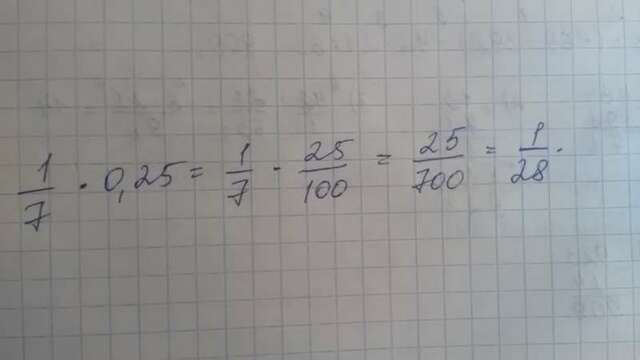 1/7 · 0,25 = 1/7 · 25/100 = 25/700 = 1/28.